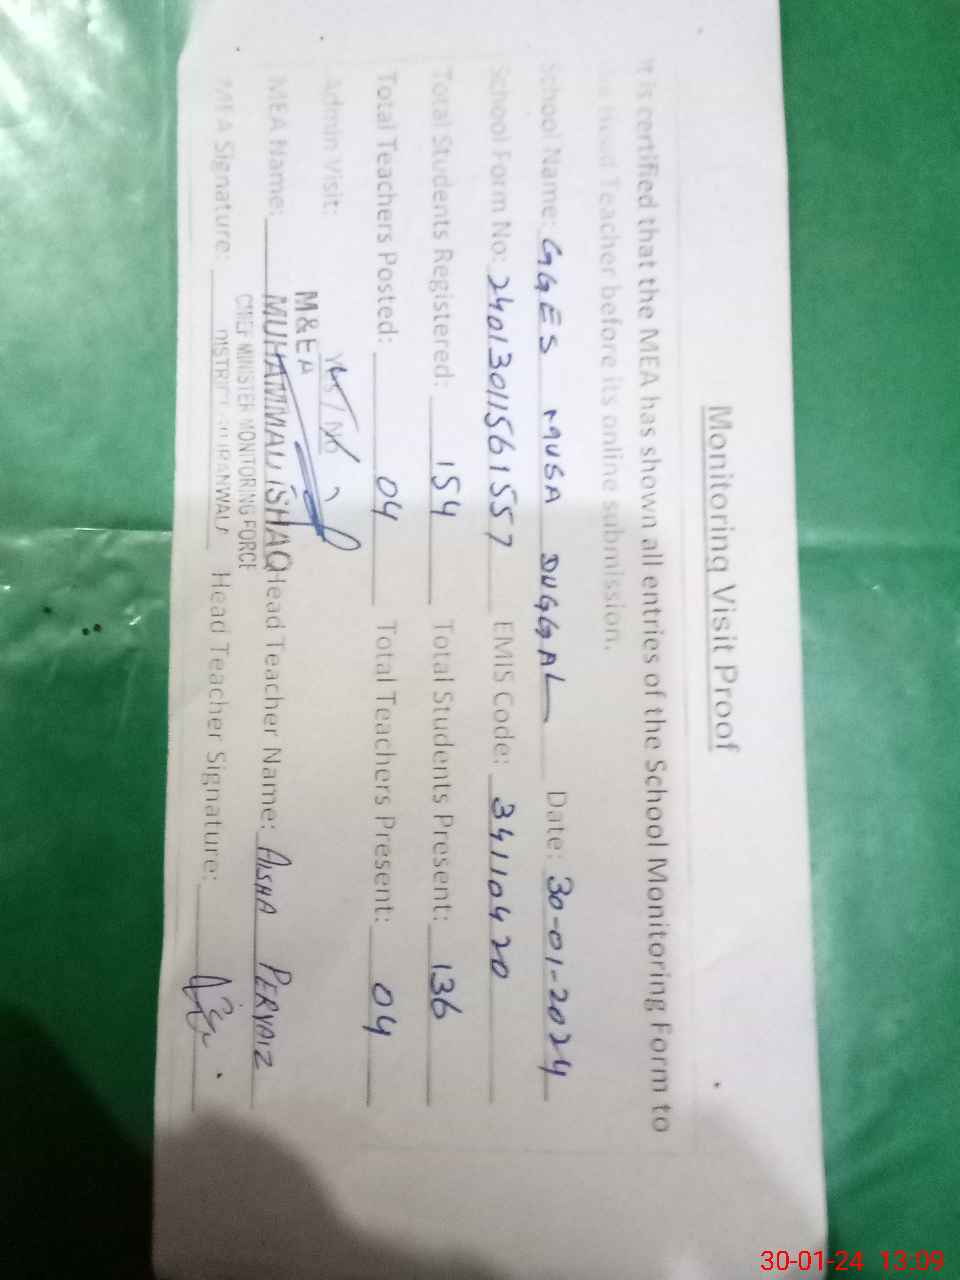 Monitoring Visit Proof
It is certified that the MEA has shown all entries of the School Monitoring Form to
the Head Teacher before its online submission.
School Name: GGES MUSA DUGGAL Date: 30-01-2024
School Form No: 24013011561557 EMIS Code: 34110420
Total Students Registered: 154 Total Students Present: 136
Total Teachers Posted: 04 Total Teachers Present: 04
Admin Visit: Yes / No
M & EA
MEA Name: MUHAMMAD ISHAQ Head Teacher Name: AISHA PERVAIZ
CHIEF MINISTER MONITORING FORCE
MEA Signature: DISTRICT GUJRANWALA Head Teacher Signature:
30-01-24 13:09